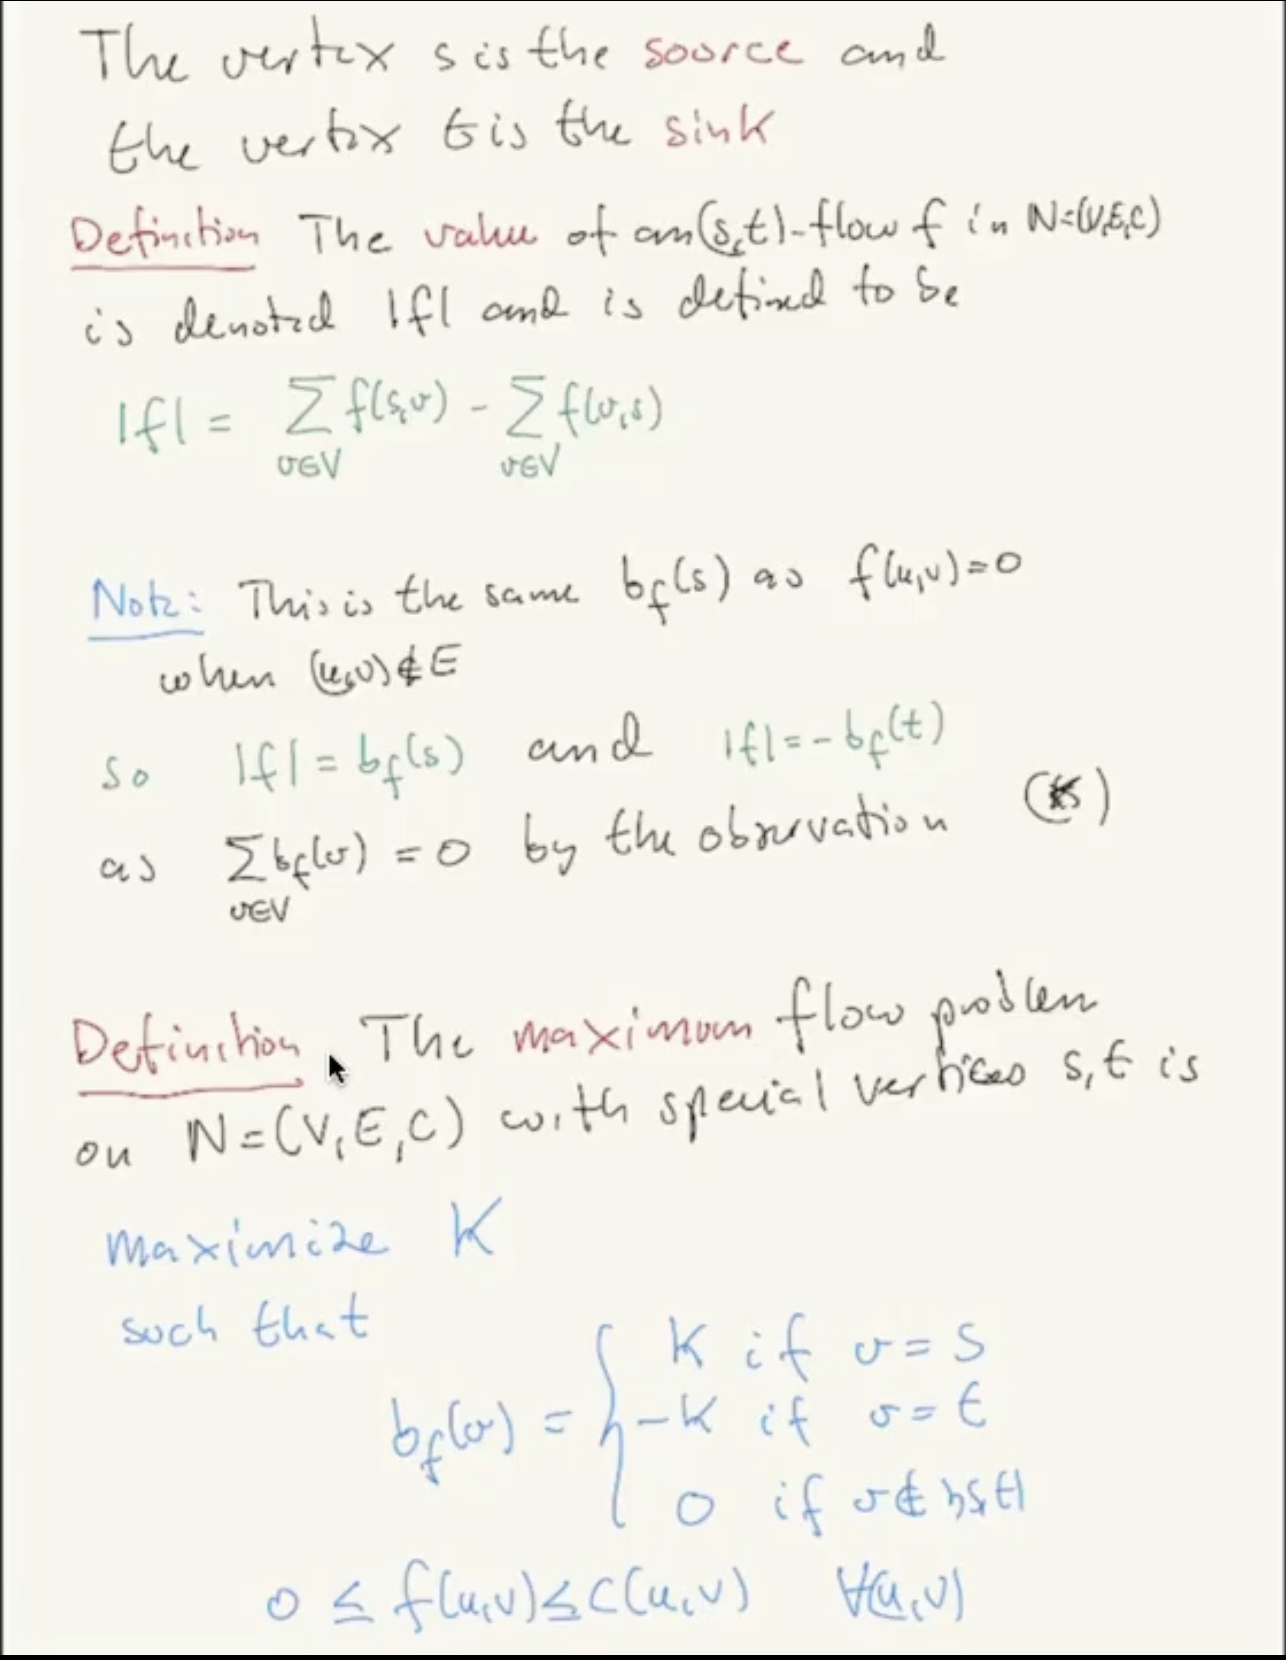 The vertex s is the source and
the vertex t is the sink
Definition The value of an (s,t)-flow f in N=(V,E,C)
is denoted |f| and is defined to be
|f| = ∑ f(s,v) - ∑ f(v,s)
v∈V v∈V
Note: This is the same b_f(s) as f(u,v)=0
when (u,v)∉E
so |f| = b_f(s) and |f| = -b_f(t)
as ∑ b_f(v) = 0 by the observation (*)
v∈V
Definition The maximum flow problem
on N=(V,E,C) with special vertices s,t is
maximize K
such that
b_f(v) = { K if v = s
-K if v = t
0 if v ∉ {s,t}
0 ≤ f(u,v) ≤ C(u,v) ∀(u,v)